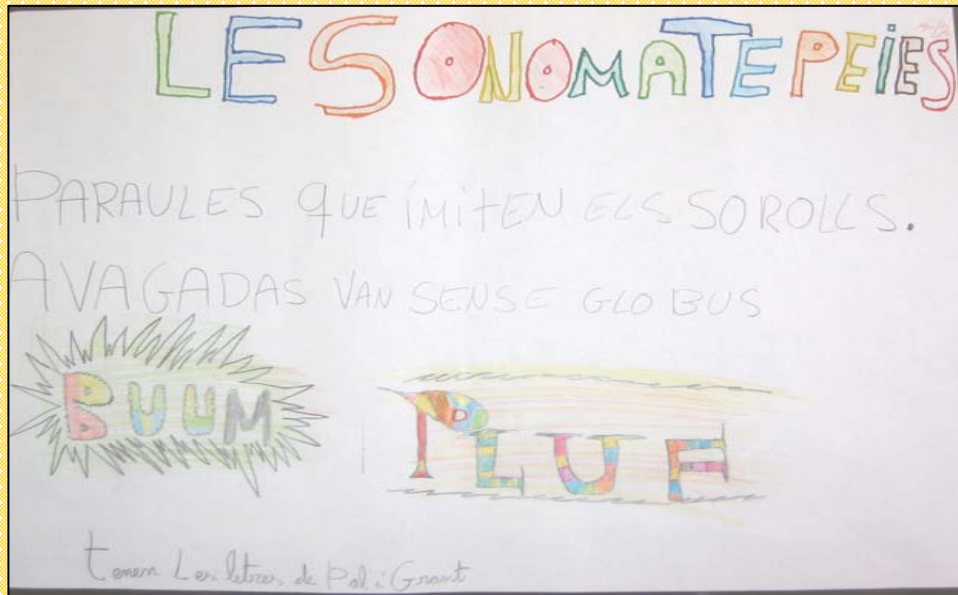 LES ONOMATEPEIES
PARAULES QUE IMITEN ELS SOROLLS.
AVAGADAS VAN SENSE GLOBUS
BUUM
PLUF
tenen Les letres de Pal i Gramt